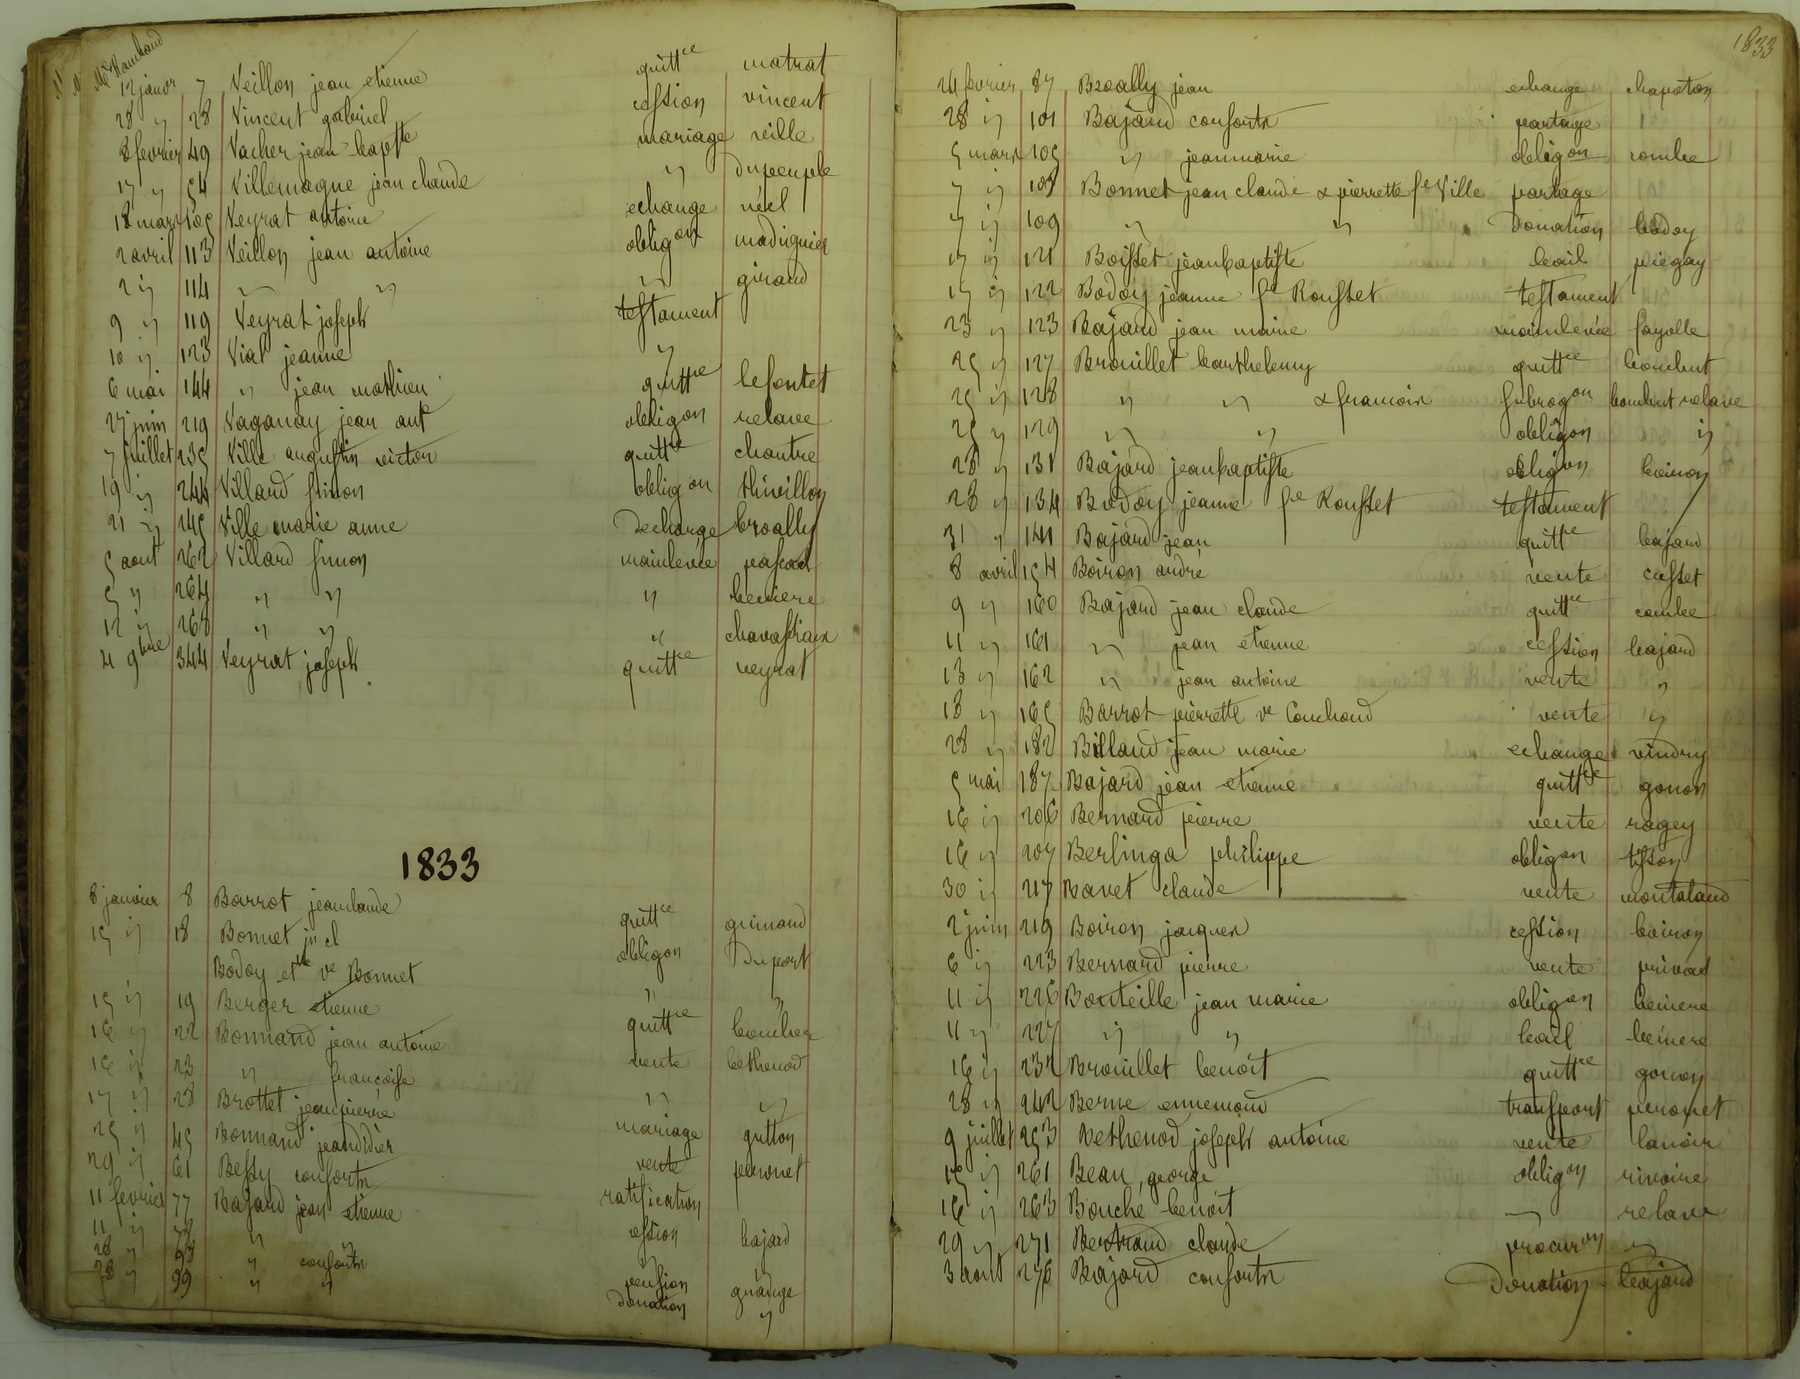 12 janvr 7 Veillon jean etienne quittce matrat
28 " 28 Vincent gabriel cession vincent
8 fevrier 49 Vacher jean bapste mariage reille
17 " 54 Villemagne jean claude " dupeuple
18 mars 105 Veyrat antoine echange néel
2 avril 113 Veillon jean antoine obligon madignier
2 " 114 " " " giraud
9 " 119 Veyrat joseph testament
10 " 123 Vial jeanne "
6 mai 144 " jean mathieu quittce
27 juin 219 Vaganay jean ante obligon relave
7 juillet 235 Ville augustin victor quittce chantre
19 " 244 Villard simon obligon thivillon
21 " 245 Ville marie anne decharge broally
5 aout 262 Villard simon mainlevée pascal
5 " 264 " " " beniere
12 " 268 " " " chavassieux
4 9bre 344 Veyrat joseph quittce veyrat
1833
8 janvier 8 Barrot jeanclaude quittce grimaud
15 " 18 Bonnet jn cl obligon duport
Bodoy ette ve Bonnet
15 " 19 Berger etienne " "
16 " 22 Bonnand jean antoine quittce boucher
16 " 23 " françoise vente bethenod
17 " 28 Brottet jeanpierre " "
25 " 45 Bonnand jeandidier mariage gutton
29 " 61 Bessy consorts vente peronet
11 fevrier 77 Bajard jean etienne ratification
11 " 78 " " cession bajard
28 " 93 " consorts "
28 " 99 " " pension grange
donation "
1833
26 fevrier 87 Broally jean echange chapoton
28 " 101 Bajard consorts partage
5 mars 105 " jeanmarie obligon combe
7 " 108 Bonnet jean claude & pierrette fe Ville partage
7 " 109 " " Donation bodoy
17 " 121 Boisset jeanbaptiste bail piegay
17 " 122 Bodoy jeanne fe Rousset testament
23 " 123 Bajard jean marie mainlevée fayolle
25 " 127 Brouillet barthelemy quittce bombut
25 " 128 " " & francois subrogon bombut relave
25 " 129 " " obligon "
28 " 131 Bajard jeanbaptiste obligon boiron
28 " 134 Bodoy jeanne fe Rousset testament
31 " 141 Bajard jean quittce bajard
8 avril 154 Boiron andré vente cusset
9 " 160 Bajard jean claude quittce combe
11 " 161 " jean etienne cession bajard
13 " 162 " jean antoine vente "
18 " 165 Barrot pierrette ve Couchoud vente "
28 " 182 Billaud jean marie echange vindry
5 mai 187 Bajard jean etienne quittce gonon
16 " 206 Bernard pierre vente ragey
16 " 207 Berlinga philippe obligon tisson
30 " 217 Bavet claude vente montaland
2 juin 219 Boiron jacques cession boiron
6 " 223 Bernard pierre vente privas
11 " 226 Bouteille jean marie obligon beniere
11 " 227 " " bail beniere
16 " 232 Brouillet benoit quittce gonon
28 " 242 Berne ennemond transport peronet
9 juillet 253 Bethenod joseph antoine vente lanoir
15 " 261 Bean, george obligon rivoire
16 " 263 Bouché benoit " relave
29 " 271 Bertrand claude procuron "
3 aout 276 Bajard consorts Donation bajard